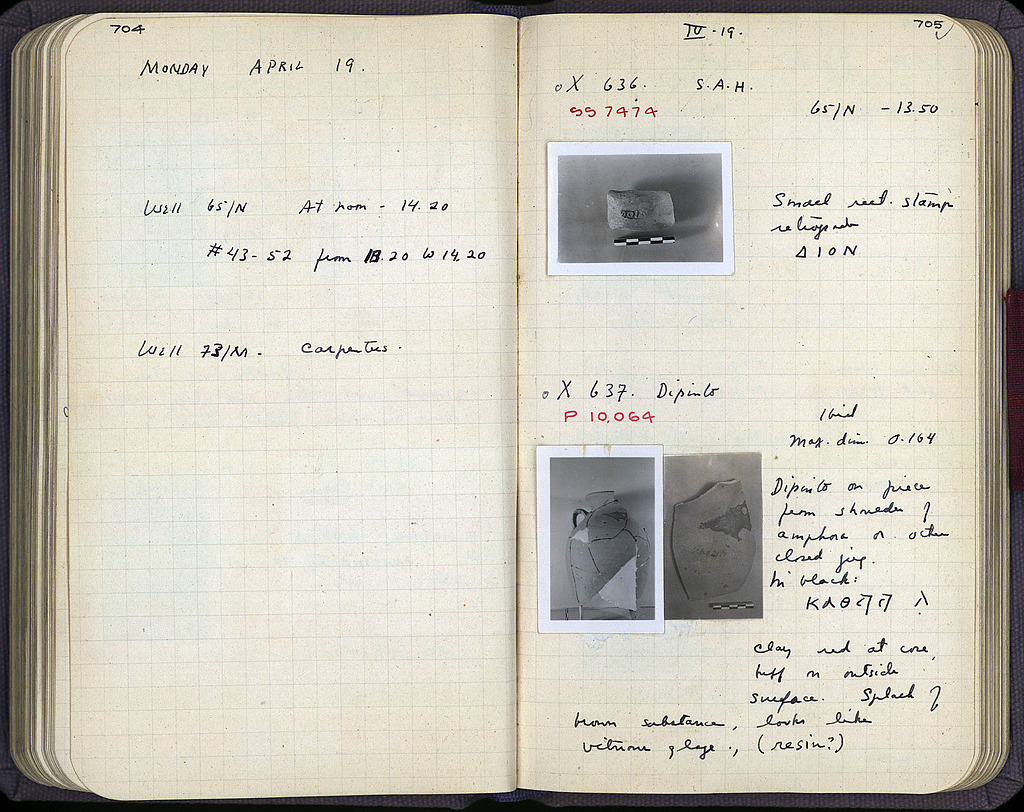 704
MONDAY APRIL 19.
Well 65/N At noon - 14.20
#43-52 from 13.20 to 14.20
Well 73/M. Carpenters.
705
IV-19.
X 636. S.A.H.
SS 7474
65/N -13.50
Small rect. stamp
retrograde
Δ Ι Ο Ν
X 637. Dipinto
P 10,064
Ibid
Max. dim. 0.164
Dipinto on piece
from shoulder of
amphora or other
closed jug.
In black:
clay red at core,
buff on outside
surface. Splash of
brown substance, looks like
vitreous glaze., (resin?)